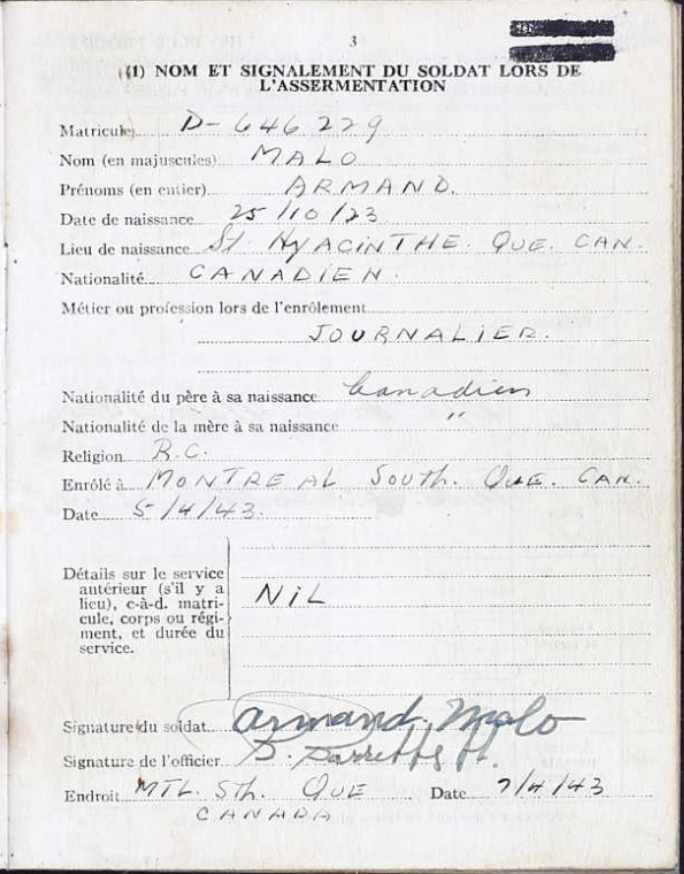 3
(1) NOM ET SIGNALEMENT DU SOLDAT LORS DE
L'ASSERMENTATION
Matricule D-646229
Nom (en majuscules) MALO
Prénoms (en entier) ARMAND.
Date de naissance 25/10/23
Lieu de naissance St. HYACINTHE. QUE. CAN.
Nationalité CANADIEN.
Métier ou profession lors de l'enrôlement
JOURNALIER.
Nationalité du père à sa naissance Canadien
Nationalité de la mère à sa naissance "
Religion R.C.
Enrôlé à MONTREAL SOUTH. QUE. CAN.
Date 5/4/43.
Détails sur le service
antérieur (s'il y a
lieu), c-à-d. matri-
cule, corps ou régi-
ment, et durée du
service.
NIL
Signature du soldat Armand. Malo
Signature de l'officier
Endroit MTL. STH. QUE Date 7/4/43
CANADA